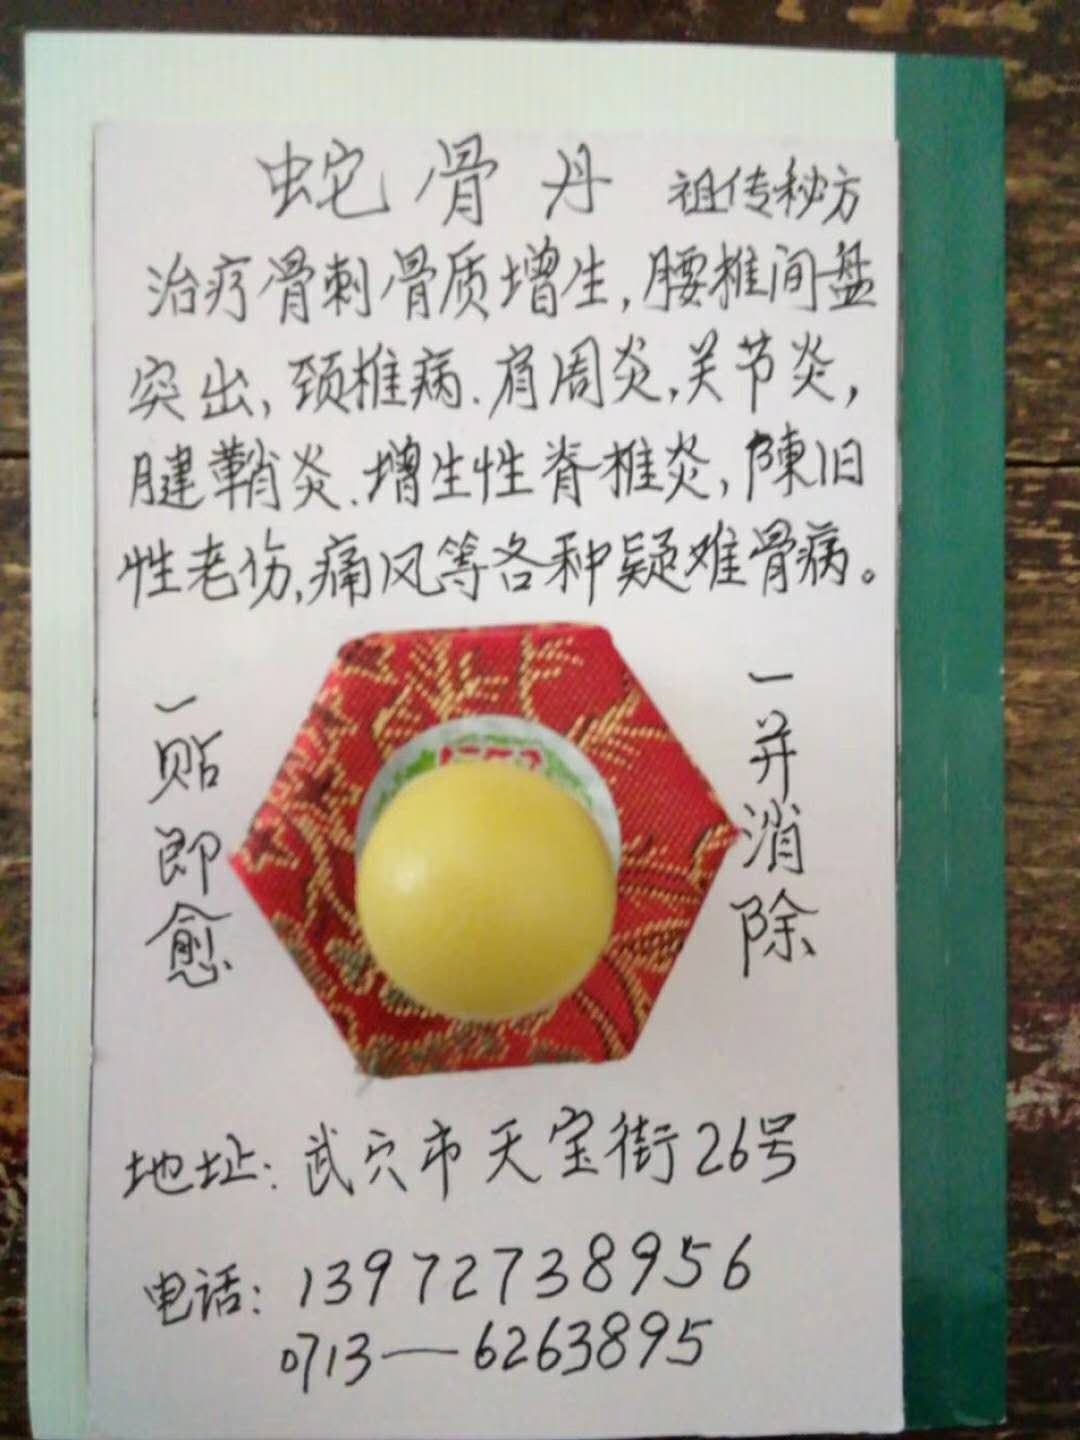 蛇骨丹 祖传秘方
治疗骨刺骨质增生,腰椎间盘
突出,颈椎病.肩周炎,关节炎,
腱鞘炎.增生性脊椎炎,陳旧
性老伤,痛风等各种疑难骨病。
一贴即愈
一并消除
地址:武穴市天宝街26号
电话:13972738956
0713—6263895